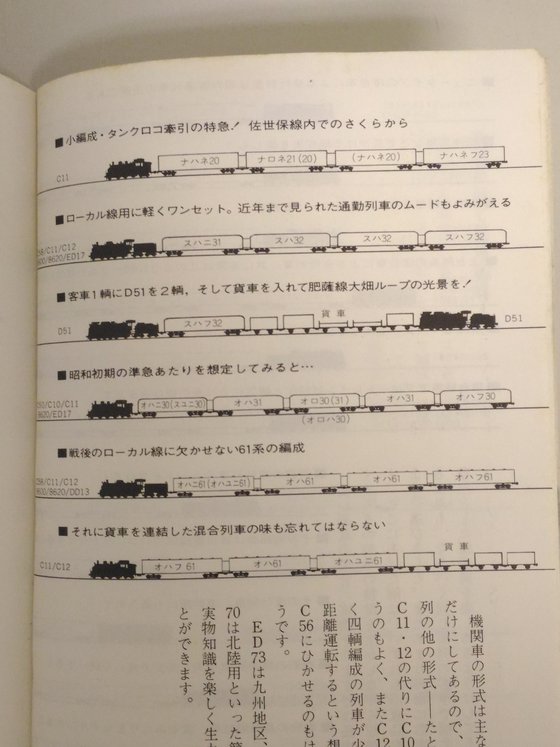 ■小編成・タンクロコ牽引の特急！ 佐世保線内でのさくらから
C11
ナハネ20
ナロネ21(20)
(ナハネ20)
ナハネフ23
■ローカル線用に軽くワンセット。近年まで見られた通勤列車のムードもよみがえる
C58/C11/C12
9600/8620/ED17
スハニ31
スハ32
スハ32
スハフ32
■客車1輌にD51を2輌，そして貨車を入れて肥薩線大畑ループの光景を！
D51
スハフ32
貨車
D51
■昭和初期の準急あたりを想定してみると…
C50/C10/C11
8620/ED17
オハニ30(スユニ30)
オハ31
オロ30(31)
(オロハ30)
オハ31
オハフ30
■戦後のローカル線に欠かせない61系の編成
C58/C11/C12
9600/8620/DD13
オハニ61(オハユニ61)
オハ61
オハ61
オハ61
オハフ61
■それに貨車を連結した混合列車の味も忘れてはならない
C11/C12
オハフ61
オハ61
オハユニ61
貨車
機関車の形式は主な
だけにしてあるので、
列の他の形式――たと
C11・12の代りにC10
うのもよく、またC12
く四輌編成の列車が少
距離運転するという想
C56にひかせるのもは
うです。
ED73は九州地区、
70は北陸用といった
実物知識を楽しく生
とができます。